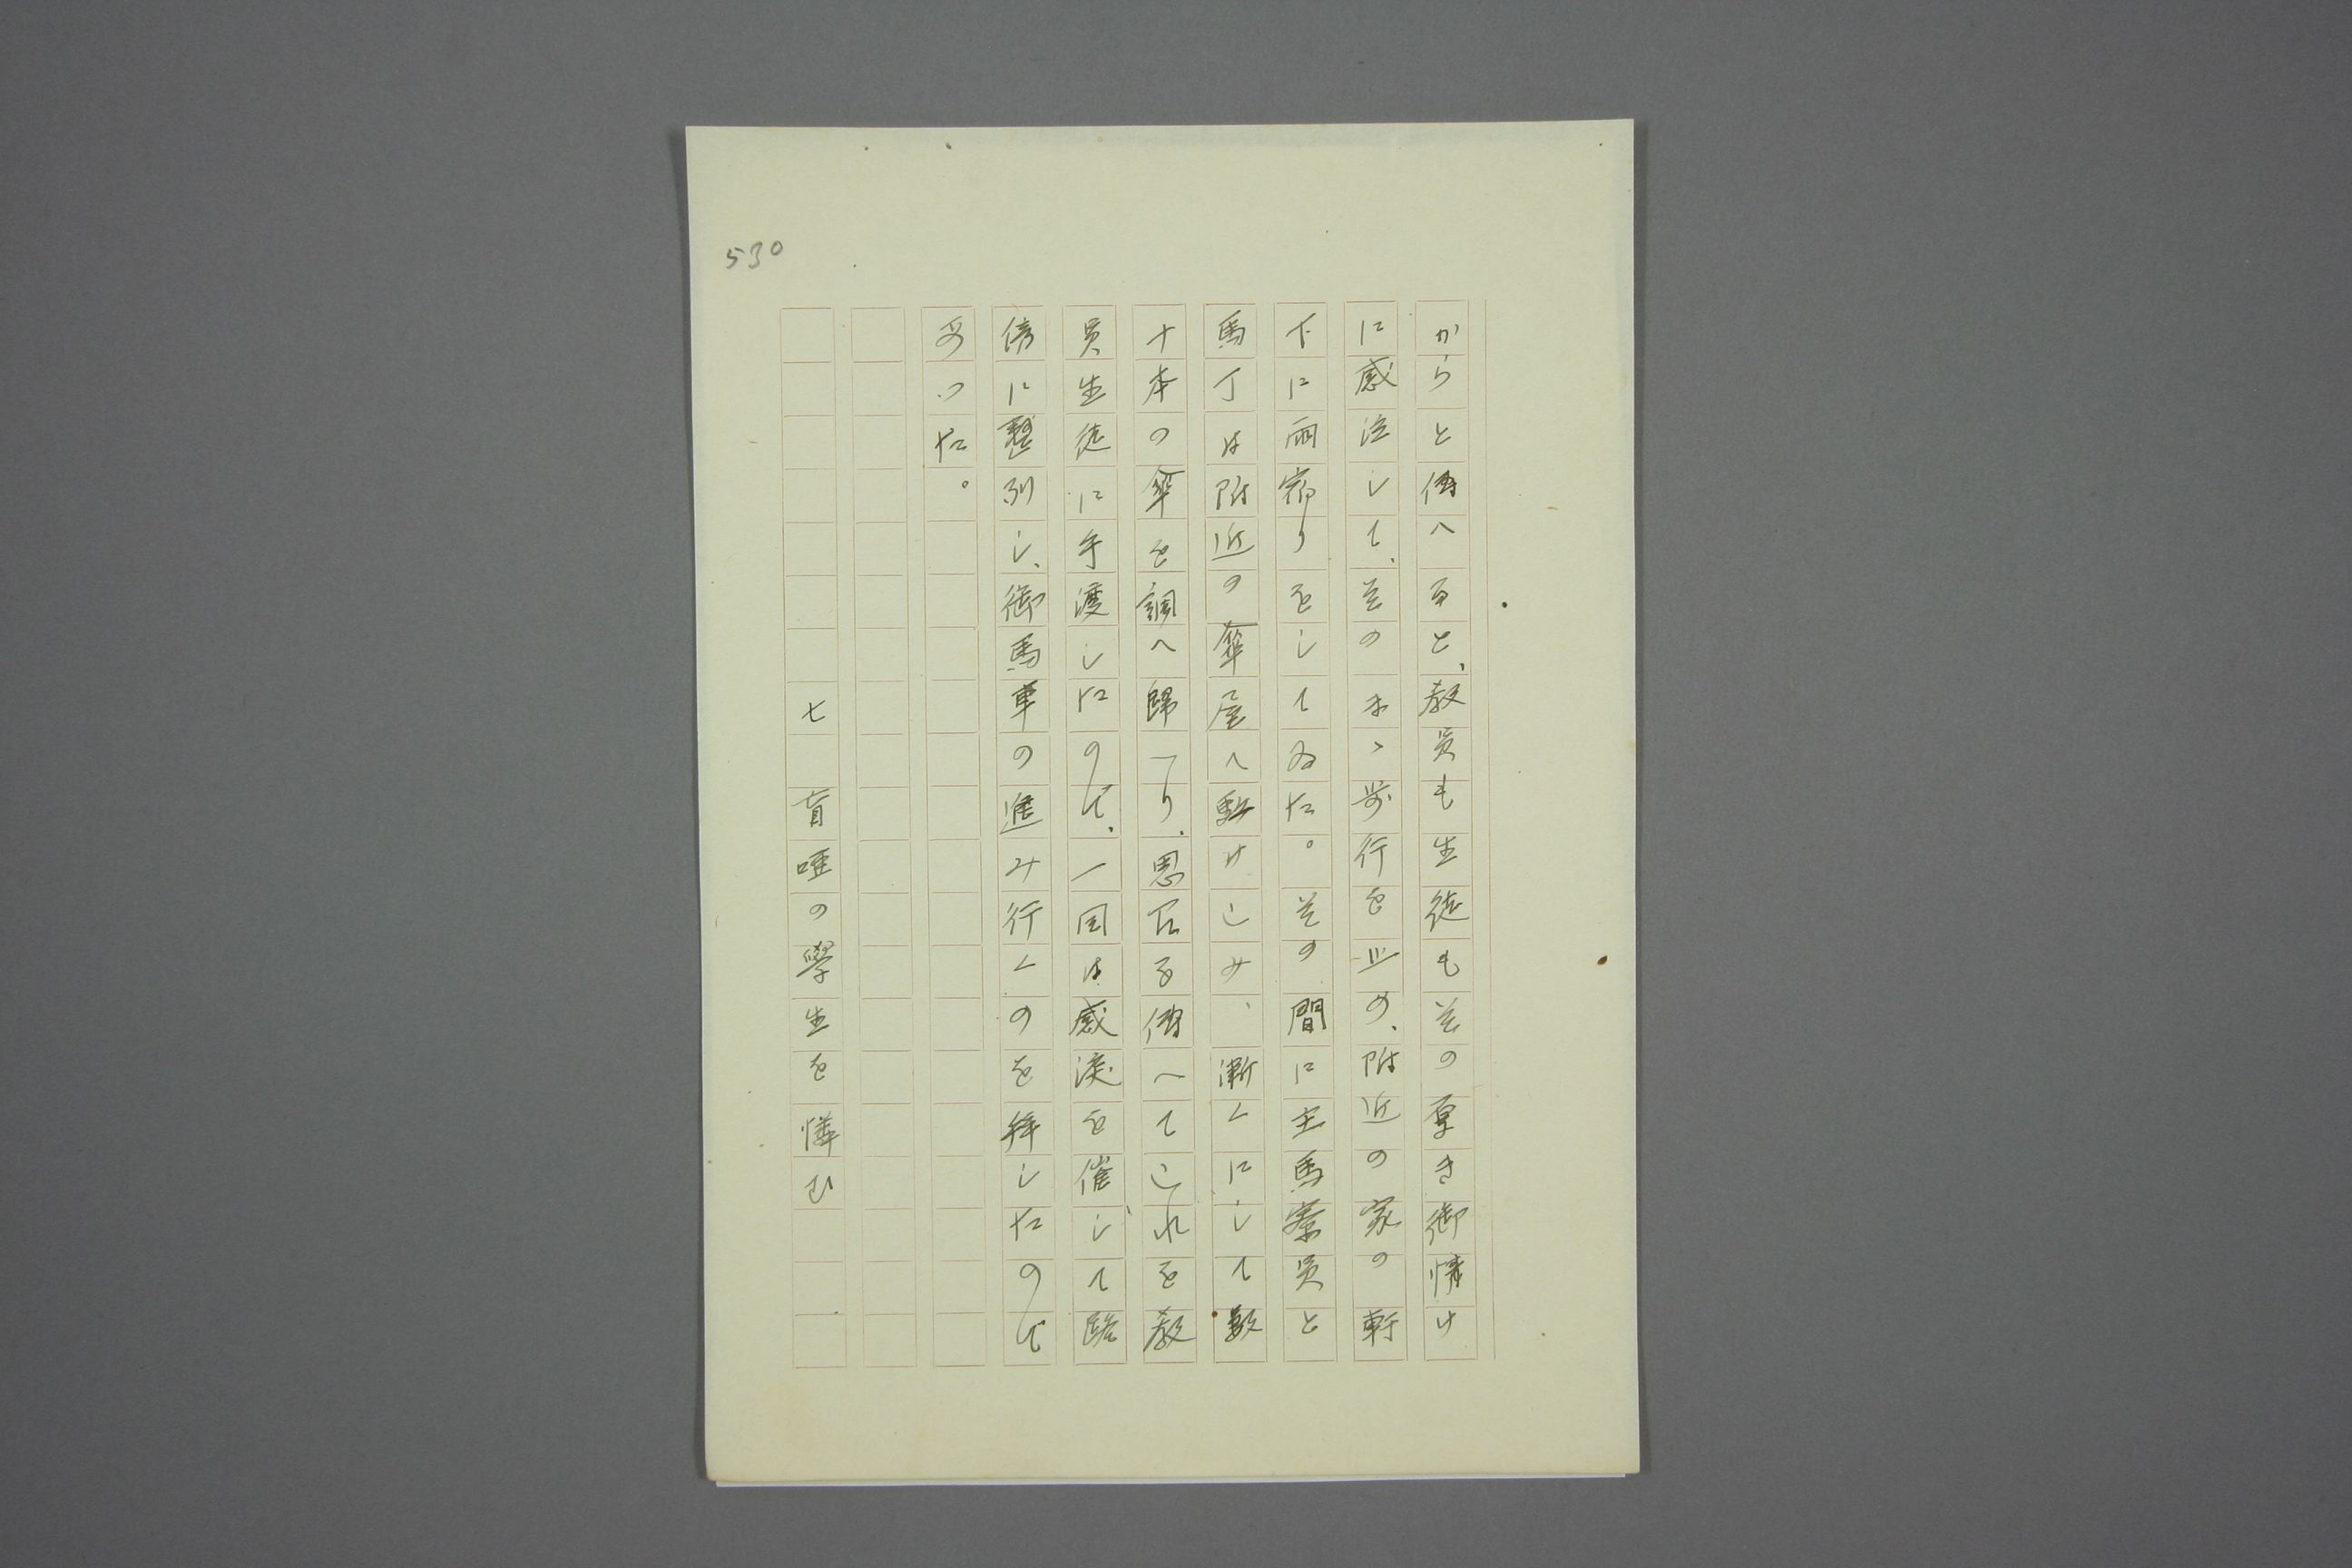 530
からと傳へると、教員も生徒も其の厚き御情け
に感泣して、其のまゝ歩行を止め、附近の家の軒
下に雨宿りをしてゐた。其の間に主馬寮員と
馬丁は附近の傘屋へ駆けこみ、漸くにして數
十本の傘を調へ歸り、思召を傳へてこれを教
員生徒に手渡したので、一同は感涙を催して路
傍に整列し、御馬車の進み行くのを拜したので
あつた。
七 盲唖の學生を憐む